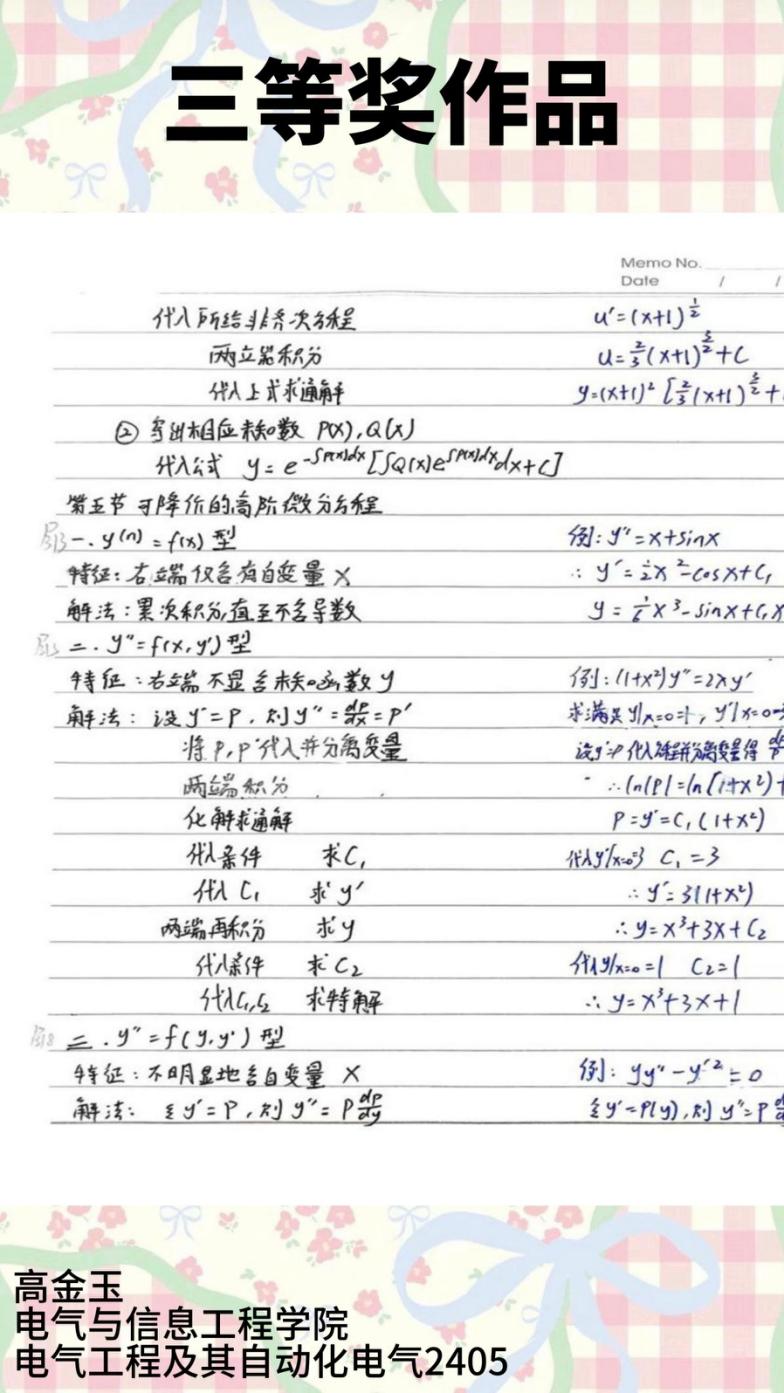 三等奖作品
Memo No.
Date / /
代入所给非齐次方程 u'=(x+1)^{1/2}
两立端积分 u=2/3(x+1)^{3/2}+C
代入上式求通解 y=(x+1)²[2/3(x+1)^{3/2}+
② 写出相应未知数 P(x),Q(x)
代入公式 y=e^{-∫P(x)dx}[∫Q(x)e^{∫P(x)dx}dx+C]
第五节 可降价的高阶微分方程
一.y^{(n)}=f(x)型 例:y''=x+sinx
特征:右端仅含有自变量 x ∴ y'=1/2x²-cosx+C₁
解法:累次积分,直至不含导数 y=1/6x³-sinx+C₁x
二.y''=f(x,y')型
特征:右端不显含未知函数 y 例:(1+x²)y''=2xy'
解法:设y'=P,则y''=dp/dx=P' 求满足y|x=0=1,y'|x=0=
将P,P'代入并分离变量 设y'=P 代入方程并分离变量得
两端积分 ∴ln|P|=ln(1+x²)+
化解求通解 P=y'=C₁(1+x²)
代入条件 求C₁ 代入y'|x=0=3 C₁=3
代入C₁ 求y' ∴y'=3(1+x²)
两端再积分 求y ∴y=x³+3x+C₂
代入条件 求C₂ 代入y|x=0=1 C₂=1
代入C₁,C₂ 求特解 ∴y=x³+3x+1
三.y''=f(y,y')型
特征:不明显地含自变量 x 例:yy''-y'²=0
解法: 令y'=P,则y''=P dp/dy 令y'=P(y),则y''=P
高金玉
电气与信息工程学院
电气工程及其自动化电气2405